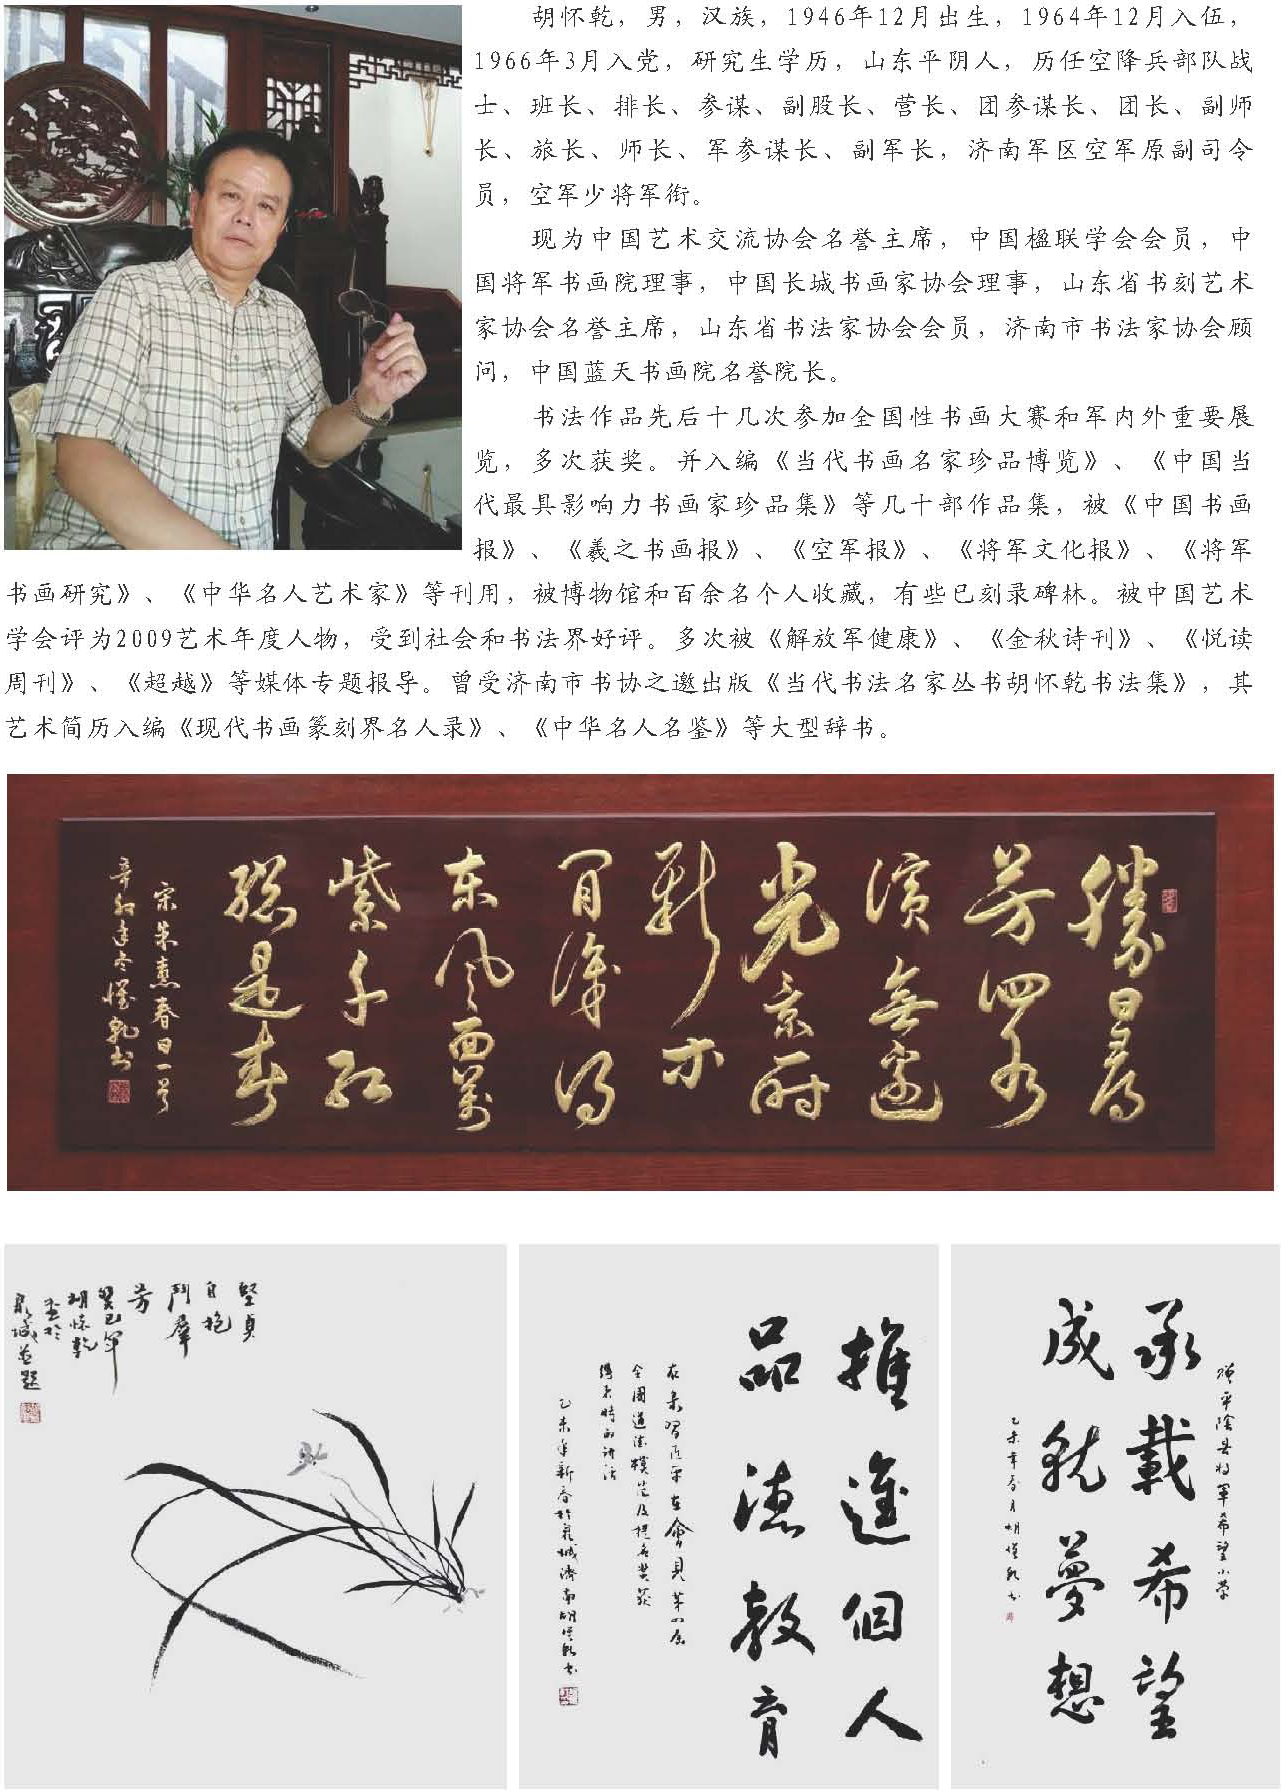 胡怀乾，男，汉族，1946年12月出生，1964年12月入伍，
1966年3月入党，研究生学历，山东平阴人，历任空降兵部队战
士、班长、排长、参谋、副股长、营长、团参谋长、团长、副师
长、旅长、师长、军参谋长、副军长，济南军区空军原副司令
员，空军少将军衔。
现为中国艺术交流协会名誉主席，中国楹联学会会员，中
国将军书画院理事，中国长城书画家协会理事，山东省书刻艺术
家协会名誉主席，山东省书法家协会会员，济南市书法家协会顾
问，中国蓝天书画院名誉院长。
书法作品先后十几次参加全国性书画大赛和军内外重要展
览，多次获奖。并入编《当代书画名家珍品博览》、《中国当
代最具影响力书画家珍品集》等几十部作品集，被《中国书画
报》、《羲之书画报》、《空军报》、《将军文化报》、《将军
书画研究》、《中华名人艺术家》等刊用，被博物馆和百余名个人收藏，有些已刻录碑林。被中国艺术
学会评为2009艺术年度人物，受到社会和书法界好评。多次被《解放军健康》、《金秋诗刊》、《悦读
周刊》、《超越》等媒体专题报导。曾受济南市书协之邀出版《当代书法名家丛书胡怀乾书法集》，其
艺术简历入编《现代书画篆刻界名人录》、《中华名人名鉴》等大型辞书。
勝日尋
芳泗水
濱無邊
光景一時
新等
閒識得
東風面萬
紫千紅
總是春
宋朱熹春日一首
堅貞
自抱
鬥羣
芳
癸巳年
胡怀乾
畫於
泉城並題
推進個人
品德教育
在來習近平在會見第四届
全國道德模範及提名獎獲
得者時的講話
乙未年新春於泉城濟南胡怀乾书
贈平陰县将軍希望小学
承載希望
成就夢想
乙未年春月胡怀乾书